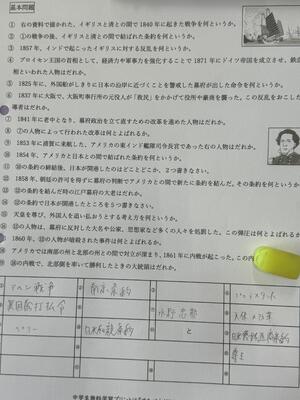 基本問題
① 右の資料で描かれた、イギリスと清との間で 1840 年に起きた戦争を何というか。
② ①の戦争の後、イギリスと清との間で結ばれた条約を何というか。
③ 1857 年、インドで起こったイギリスに対する反乱を何というか。
④ プロイセン王国の首相として、経済力や軍事力を強化することで 1871 年にドイツ帝国を成立させ、鉄血
相といわれた人物はだれか。
⑤ 1825 年、外国船がしきりに日本の沿岸に近づくことを警戒した幕府が出した命令を何というか。
⑥ 1837 年に大阪で、大阪町奉行所の元役人が「救民」をかかげて役所や豪商を襲った。この反乱をおこした
導者はだれか。
⑦ 1841 年に老中となり、幕府政治を立て直すための改革を進めた人物はだれか。
⑧ ⑦の人物によって行われた改革は何とよばれるか。
⑨ 1853 年に浦賀に来航した、アメリカの東インド艦隊司令長官であった右の人物はだれか。
⑩ 1854 年、アメリカと日本との間で結ばれた条約を何というか。
⑪ ⑩の条約の締結後、日本が開港したのはどことどこか、2つ書きなさい。
⑫ 1858 年、朝廷の許可を得ずに幕府の判断でアメリカとの間で新たに条約を結んだ。その条約を何という
⑬ ⑫の条約を結んだ時の江戸幕府の大老はだれか。
⑭ ⑫の条約で日本が開港したところを5つ書きなさい。
⑮ 天皇を尊び、外国人を追い払おうとする考え方を何というか。
⑯ ⑬の人物は、幕府に反対した大名や公家、思想家など多くの人々を処罰した。この弾圧は何とよばれるか
1860 年、⑬の人物が暗殺された事件は何とよばれるか。
アメリカでは南部の州と北部の州との間で対立が深まり、1861 年に内戦が起こった。この内
⑱の内戦で、北部側を率いて勝利したときの大統領はだれか。
アヘン戦争
南京条約
異国船打払令
水野忠邦
天保の改革
ペリー
日米和親条約
と